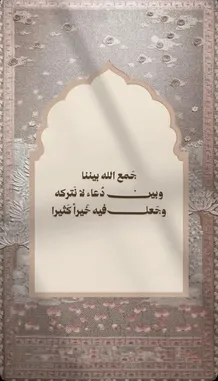 جَمع الله بيننا
وبين دُعاء لا نَتركه
وجَعل فيه خَيراً كَثيرا